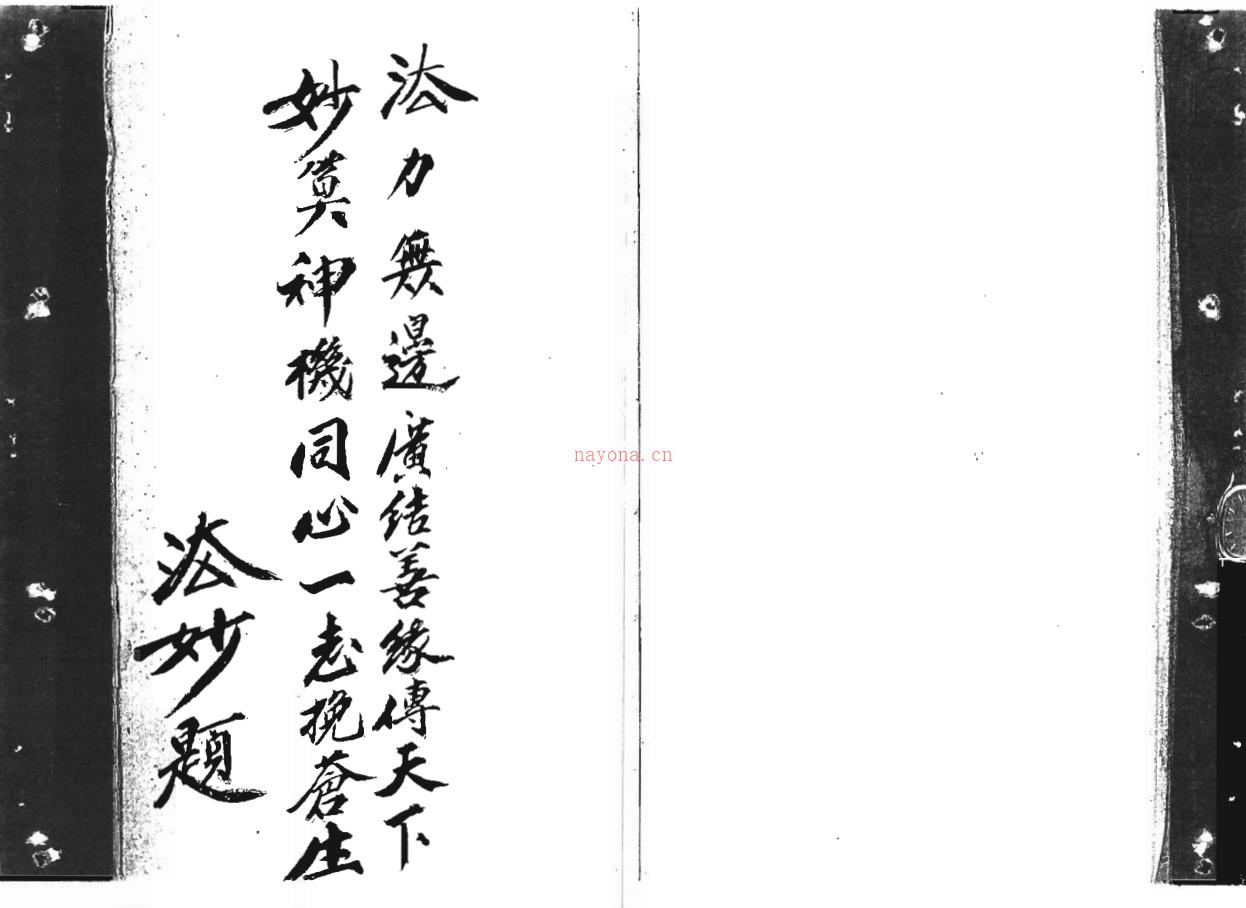 法力無邊廣結善緣傳天下
妙算神機同心一志挽蒼生
法妙題
nayona.cn